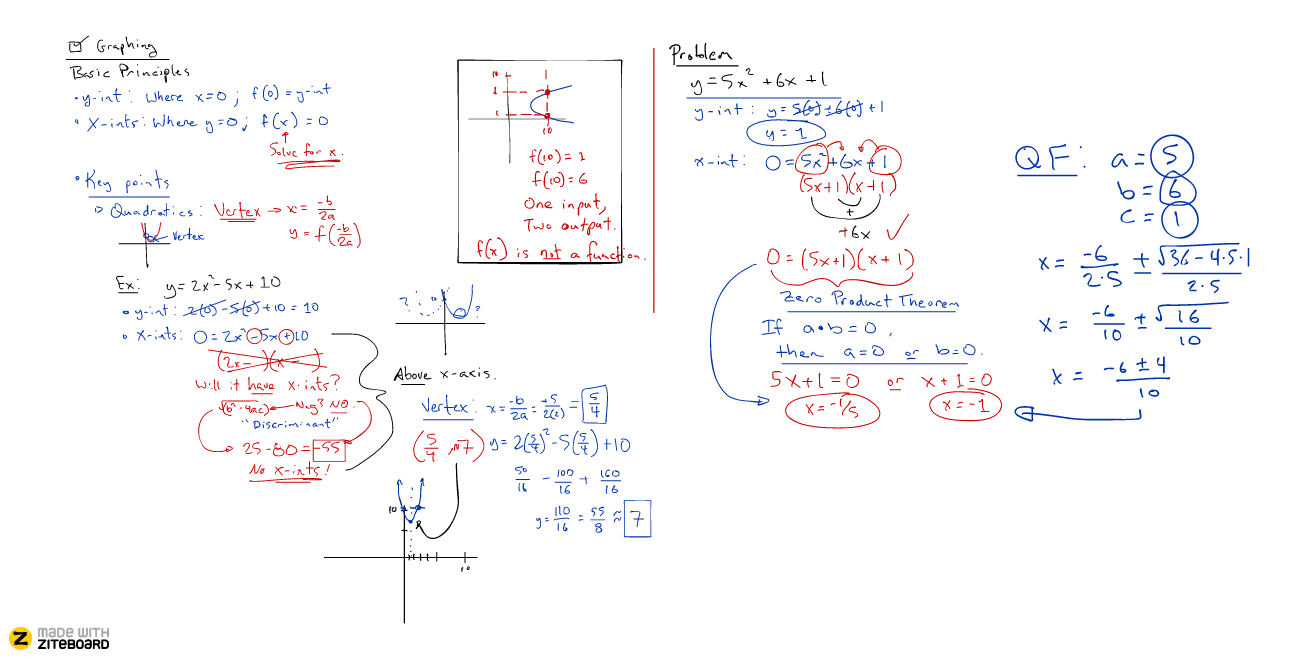 Graphing
Basic Principles
• y-int: Where x=0; f(0)=y-int
• X-ints: Where y=0; f(x)=0
Solve for x.
• Key points
▷ Quadratics: Vertex → x = -b/2a
y = f(-b/2a)
Vertex
Ex: y=2x²-5x+10
• y-int: 2(0)-5(0)+10=10
• X-ints: 0=2x²-5x+10
(2x- )(x- )
Will it have x-ints?
√(b²-4ac) ← Neg? NO.
"Discriminant"
25-80=-55
No x-ints!
10
10
f(10)=1
f(10)=6
One input,
Two output.
f(x) is not a function.
? ?
Above x-axis.
Vertex: x = -b/2a = +5/2(2) = 5/4
(5/4, ~7) y=2(5/4)²-5(5/4)+10
50/16 - 100/16 + 160/16
y = 110/16 = 55/8 ≈ 7
10
10
Problem
y=5x²+6x+1
y-int: y=5(0)+6(0)+1
y=1
x-int: 0=5x²+6x+1
(5x+1)(x+1)
+
+6x ✓
0=(5x+1)(x+1)
Zero Product Theorem
If a•b=0,
then a=0 or b=0.
5x+1=0 or x+1=0
x=-1/5 x=-1
QF: a=5
b=6
c=1
x = -6/2·5 ± √(36-4·5·1)/2·5
x = -6/10 ± √16/10
x = -6±4/10
MADE WITH
ZITEBOARD